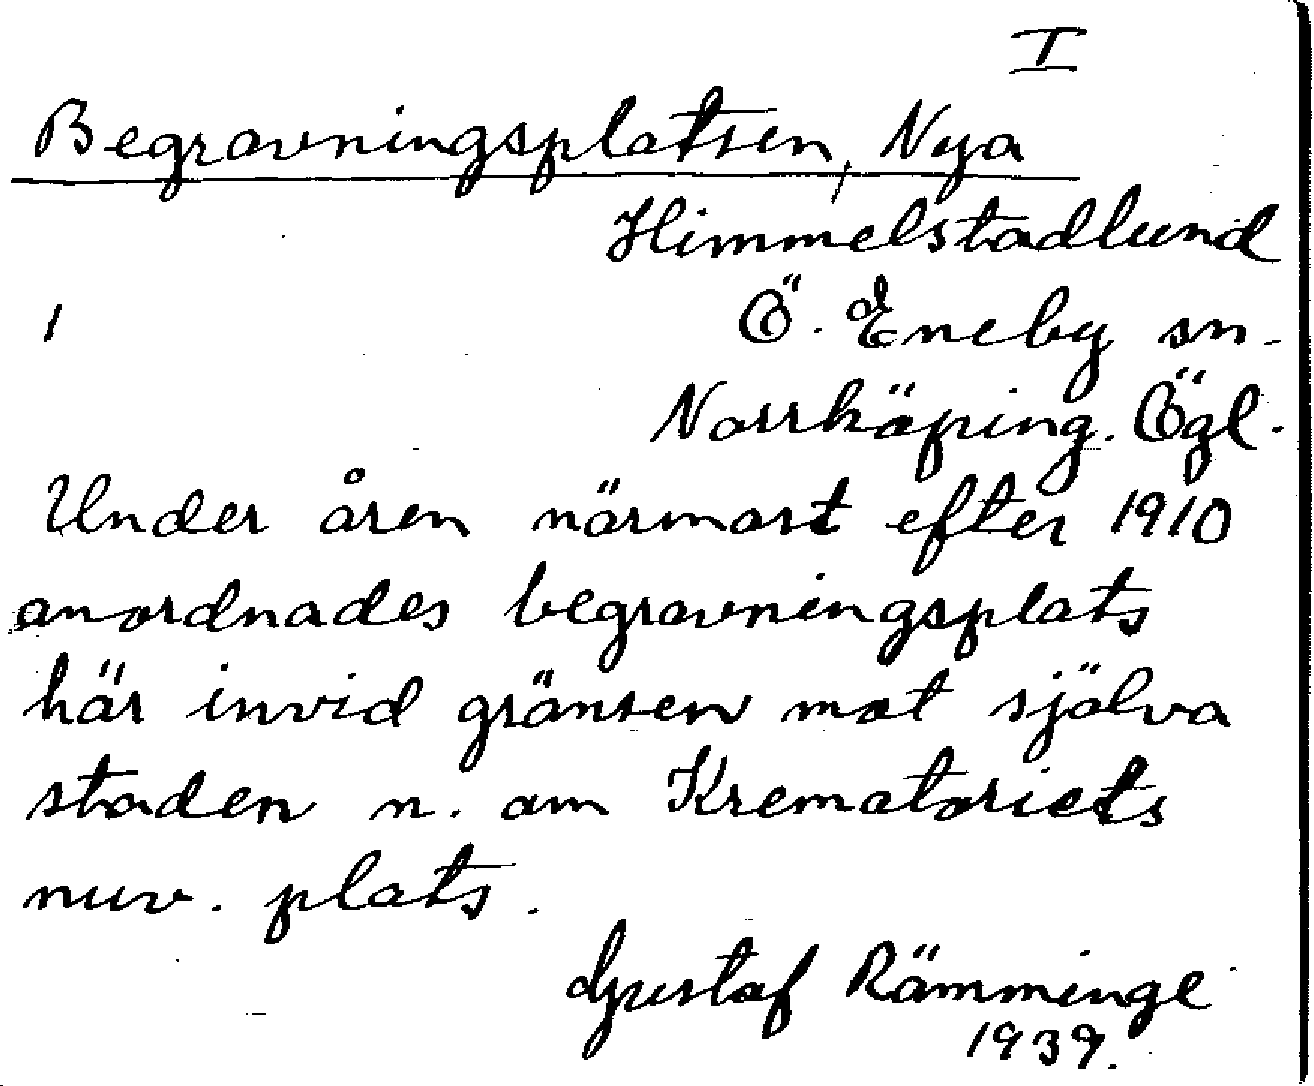 I
Begravningsplatsen, Nya
Himmelstadlund
Ö. Eneby sn.
Norrköping. Ögl.
Under åren närmast efter 1910
anordnades begravningsplats
här invid gränsen mot själva
staden n. om Krematoriets
nuv. plats.
Gustaf Rämminge
1939.